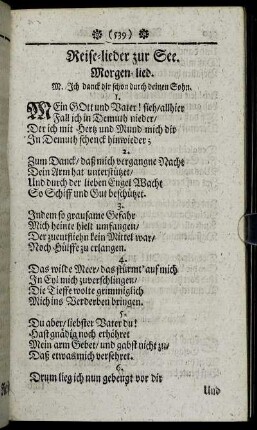 (539)
Reise-lieder zur See.
Morgen-lied.
M. Ich danck dir schon durch deinen Sohn.
1.
MEin GOtt und Vater! sieh/allhier
Fall ich in Demuth nieder/
Der ich mit Hertz und Mund mich dir
In Demuth schenck hinwieder;
2.
Zum Danck/ daß mich vergangne Nacht
Dein Arm hat unterstützet/
Und durch der lieben Engel Wacht
So Schiff und Gut beschützet.
3.
Indem so grausame Gefahr
Mich heint hielt umfangen/
Der zuentfliehn kein Mittel war/
Noch Hülffe zu erlangen.
4.
Das wilde Meer/ das stürmt' auf mich
In Eyl mich zuverschlingen/
Die Tieffe wolte grimmiglich
Mich ins Verderben bringen.
5.
Du aber/ liebster Vater du!
Hast gnädig noch erhöhret
Mein arm Gebet/ und gabst nicht zu/
Daß etwas mich versehret.
6.
Drum lieg ich nun gebeugt vor dir
Und